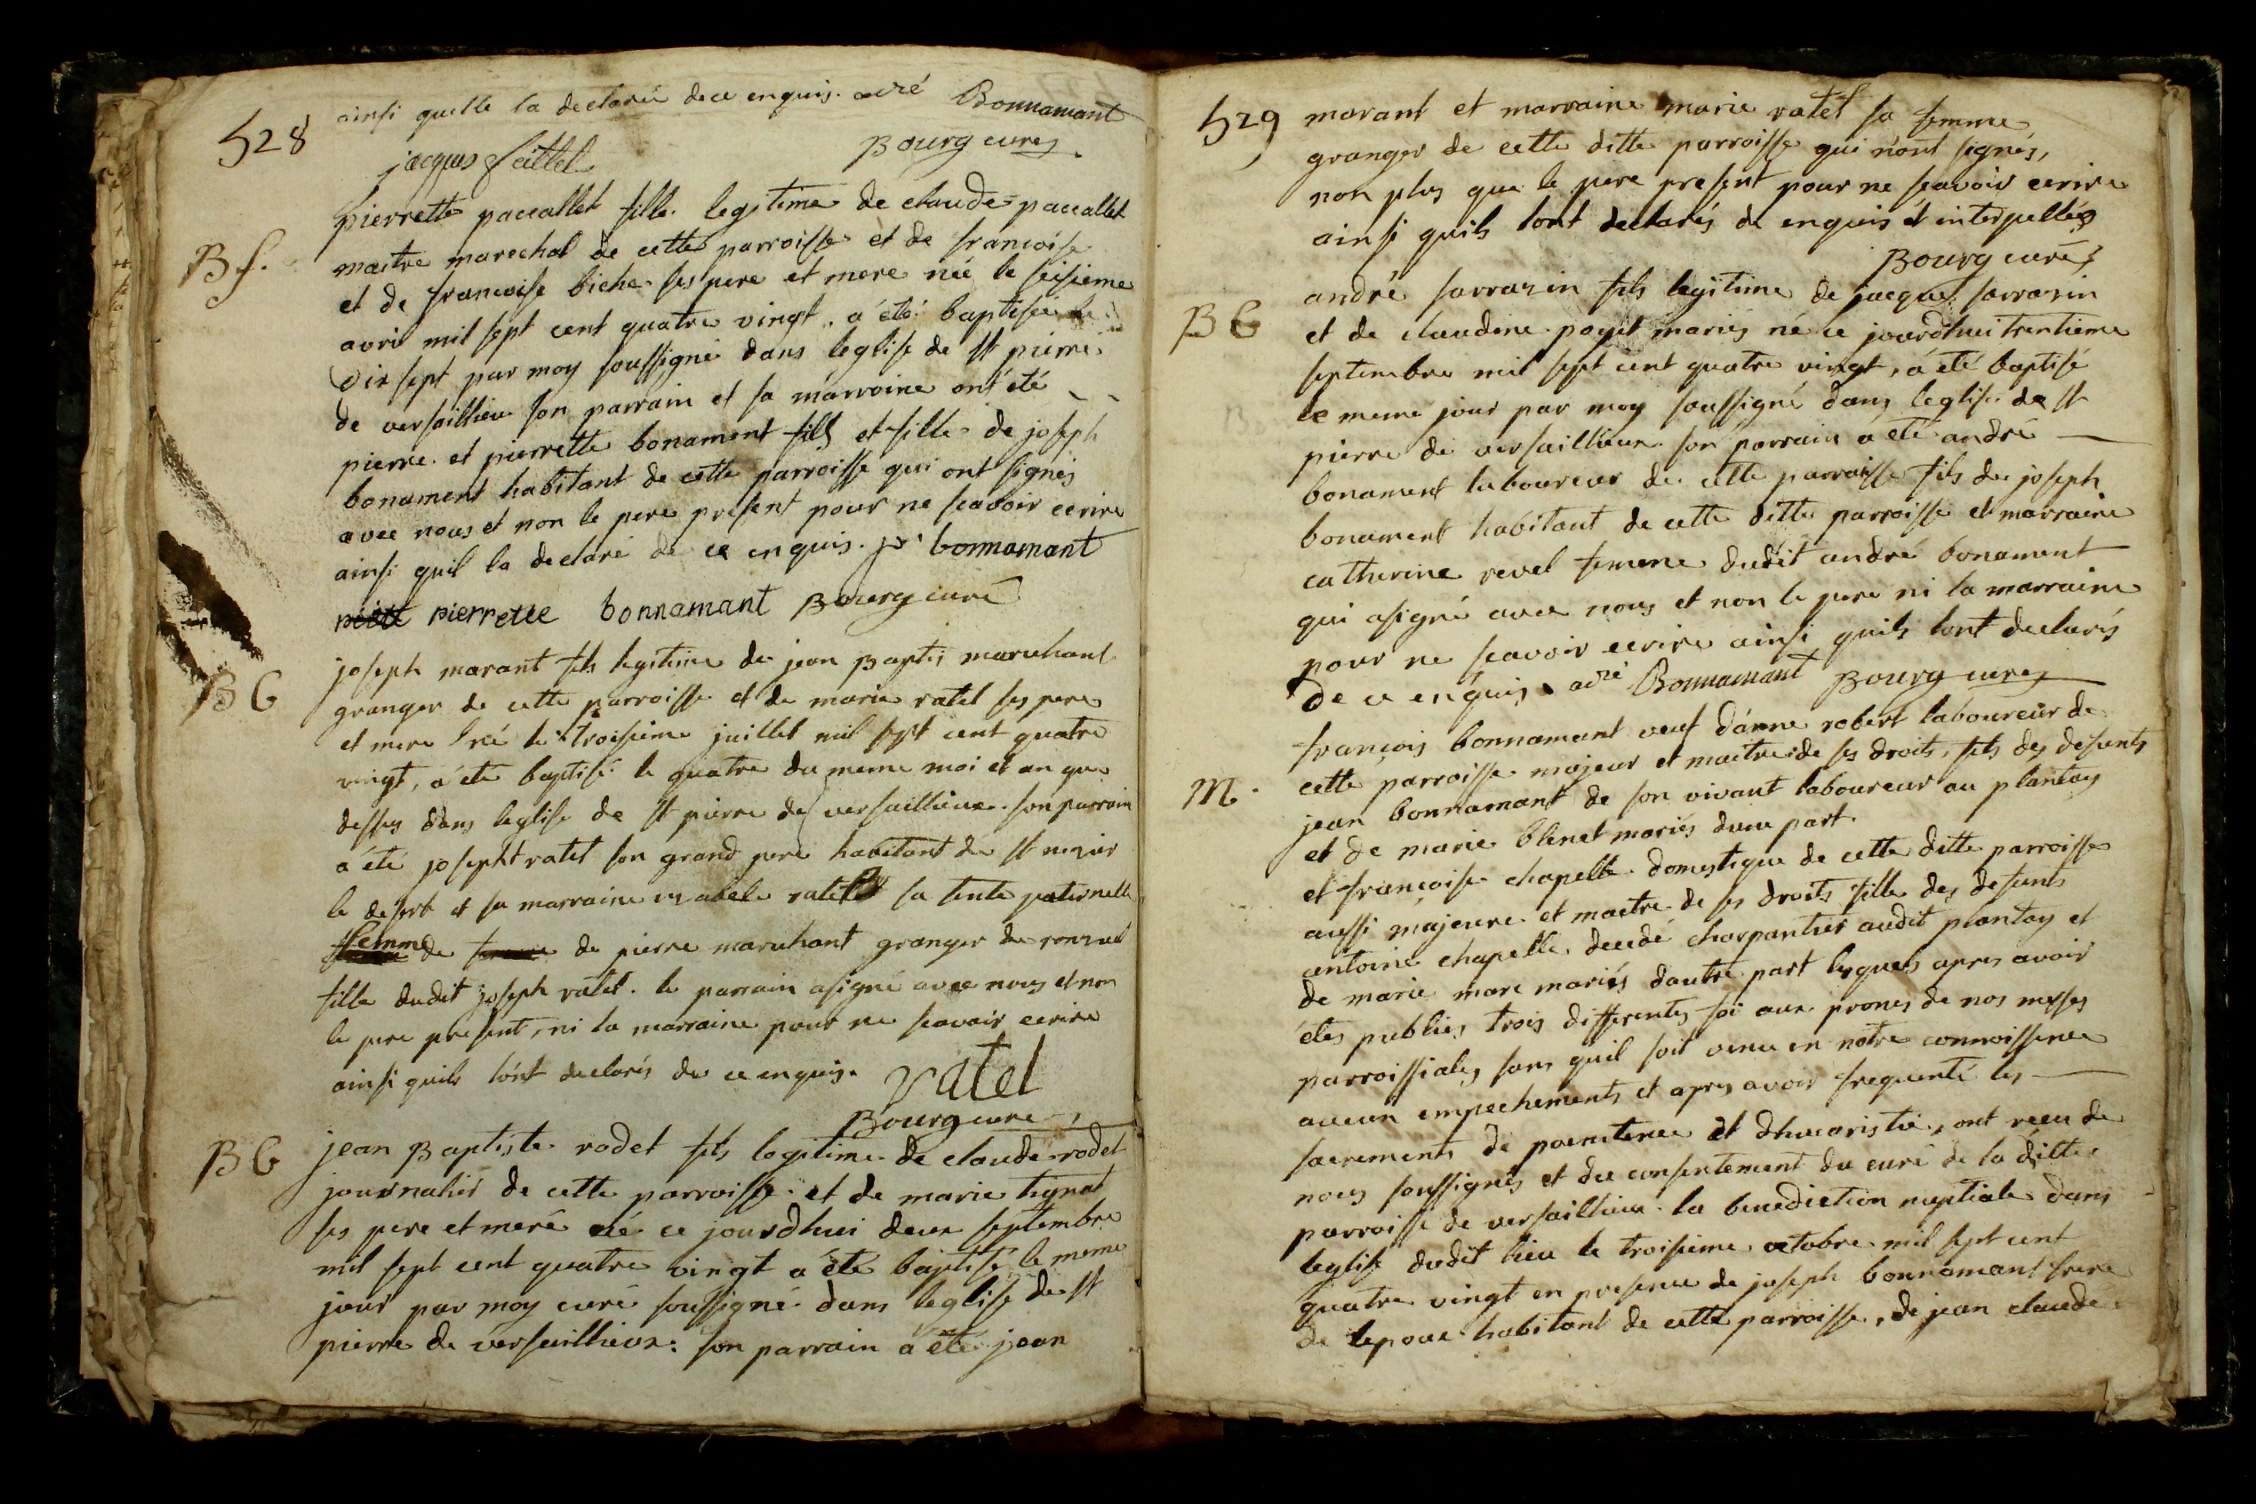 528
ainsi quelle la declarée de ce enquis. adré Bonnamant
jacques Bourg curé
B f.
pierrette paccallet fille legitime de claude paccallet
maitre marechal de cette parroisse et de françoise
et de francoise biche ses pere et mere née le seisieme
avril mil sept cent quatre vingt, a été baptisée le
dix sept par moy soussigné dans leglise de st pierre
de versaillieu son parrain et sa marraine ont été
pierre et pierrette bonament fils et fille de joseph
bonament habitant de cette parroisse qui ont signés
avec nous et non le pere present pour ne scavoir ecrire
ainsi quil la declaré de ce enquis. pr bonnamant
pierrette bonnamant Bourg curé
B G
joseph marant fils legitime de jean Baptis maruhant
granger de cette parroisse et de marie ratel ses pere
et mere né le troisieme juillet mil sept cent quatre
vingt, a été baptisé le quatre du meme moi et an que
dessus dans leglise de st pierre de versaillieux. son parrain
a été josepht ratel son grand pere habitant de st nizier
le desert et sa marraine izabele ratel sa tente paternelle
femme de de pierre maruhant granger de ronzuel
fille dudit joseph ratel. le parrain asigné avec nous et non
le pere present, ni la marraine pour ne scavoir ecrire
ainsi quils lont declarés de ce enquis. ratel
Bourg curé
B G
jean Baptiste rodet fils legitime de claude rodet
journalier de cette parroisse et de marie tignat
ses pere et mere né ce jourdhui deux septembre
mil sept cent quatre vingt a été baptisé le meme
jour par moy curé soussigné dans leglise de st
pierre de versaillieux: son parrain a été jean
529
marant et marraine marie ratel sa femme
granger de cette ditte parroisse qui n'ont signés,
non plus que le pere present pour ne scavoir ecrire
ainsi quils lont declarés de enquis et interpellés
Bourg curé
B G
andré sarrazin fils legitime de jacque sarrazin
et de claudine poyet mariés né ce jourdhui trentieme
septembre mil sept cent quatre vingt, a été baptisé
le meme jour par moy soussigné dans leglise de st
pierre de versaillieux son parrain a été andré
bonament laboureur de cette parroisse fils de joseph
bonament habitant de cette ditte parroisse et marraine
catherine revel femme dudit andré bonament
qui asigné avec nous et non le pere ni la marraine
pour ne scavoir ecrire ainsi quils lont declarés
de ce enquis adré Bonnamant Bourg curé
M.
françois bonnamant veuf danne robert laboureur de
cette parroisse majeur et maitre de ses droits, fils des defunts
jean bonnamant de son vivant laboureur au plantay
et de marie blenet mariés dune part.
et françoise chapelle domestique de cette ditte parroisse
aussi majeure et maitre de ses droits fille des defunts
antoine chapelle decedé charpantier audit plantay et
de marie marc mariés dautre part lesquels apres avoir
étés publiés trois differentes foi aux prones de nos messes
parroissiales sans quil soit venu en notre connoissence
aucun empechements et apres avoir frequenté les
sacrements de poenitence et dheucaristie, ont reçu de
nous soussignés et du consentement du curé de la ditte
parroisse de versaillieux la benediction nuptiale dans
leglise dudit lieu le troisieme octobre mil sept cent
quatre vingt en presence de joseph bonnamant frere
de lepoux habitant de cette parroisse, de jean claude